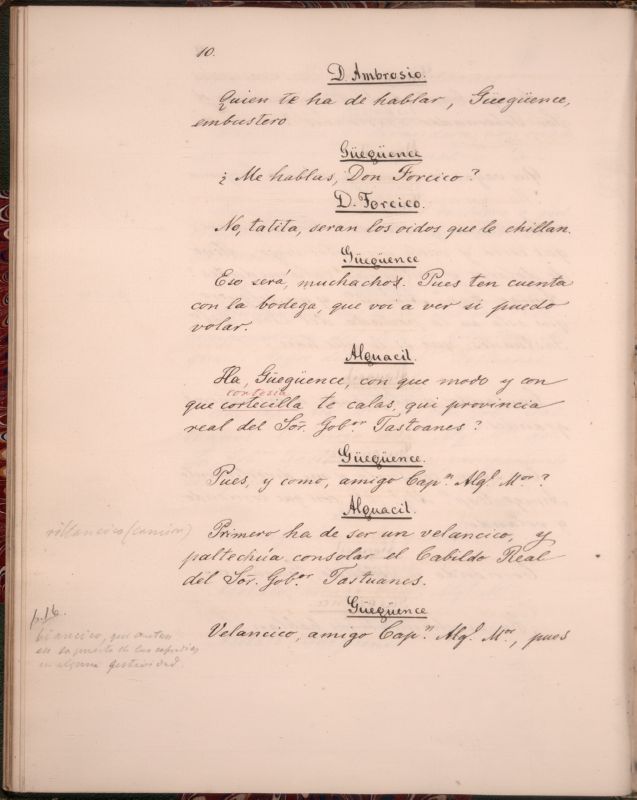 10.
D. Ambrosio.
Quien te ha de hablar, Güegüence,
embustero
Güegüence
¿ Me hablas, Don Forcico?
D. Forcico.
No, tatita, seran los oidos que le chillan.
Güegüence
Eso será, muchachos. Pues ten cuenta
con la bodega, que voi a ver si puedo
volar.
Alguacil.
Ha, Güegüence, con que modo y con
cortesia
que cortecilla te calas, qui provincia
real del Sor. Gobor Tastuanes?
Güegüence.
Pues, y como, amigo Capn. Algl. Mor?
Alguacil.
villancico (cancion)
Primero ha de ser un velancico, y
paltechúa consolar el Cabildo Real
del Sor. Gobor Tastuanes.
Güegüence
p. 16.
Velancico, amigo Capn. Algl. Mor, pues
en alguna festividad.